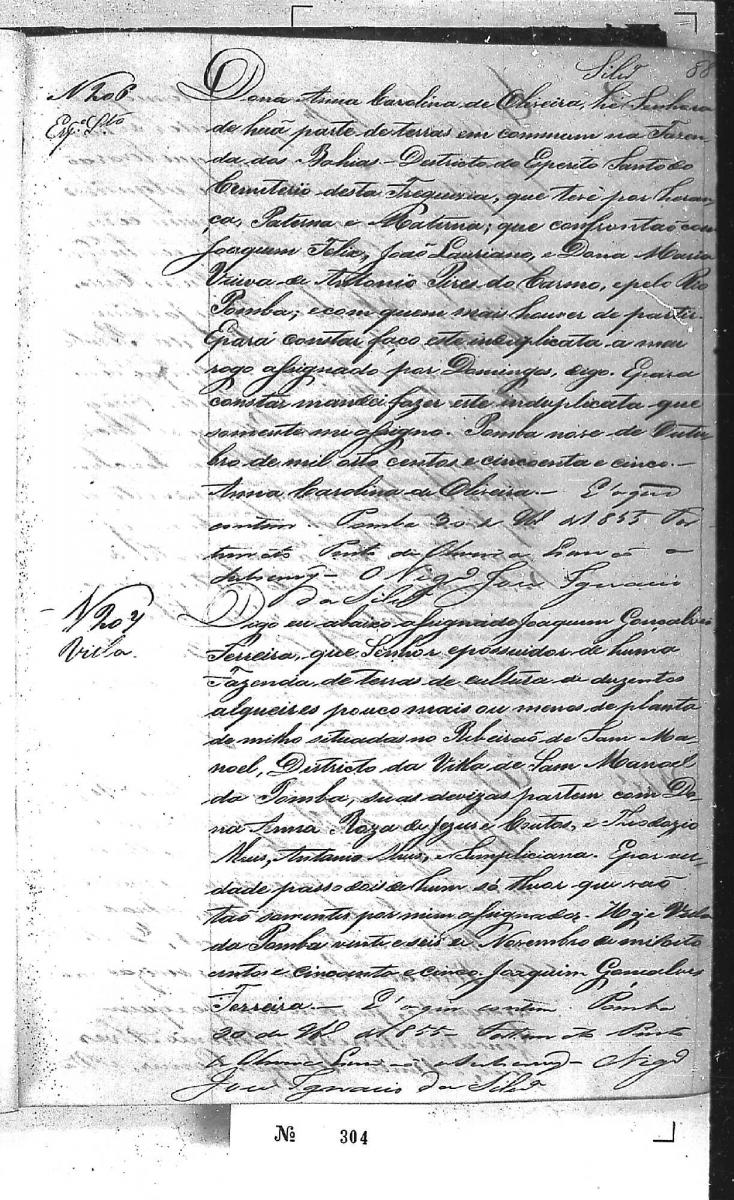 Silvª 88
N 206
Espº Stº
Dona Anna Carolina de Oliveira, he Senhora
de huã parte de terras em commum na Fazen-
da dos Bahias - Destricto do Esperito Santo do
Cemiterio desta Freguezia, que teve por heran-
ça, Paterna e Materna; que confrontaõ com
Joaquim Felix, Joaõ Lauriano, e Dona Maria
Viuva de Antonio Pires do Carmo, e pelo Rio
Pomba; e com quem mais houver de partir.
E para constar faço este induplicata a meu
rogo assignado por Domingos, digo. E para
constar mandei fazer este induplicata que
somente me assigno. Pomba nove de Outu-
bro de mil oito centos e cincoenta e cinco. -
Anna Carolina de Oliveira. - E' o que
contem. Pomba 30 de 9bº de 1855
Pinto de Oliveira
O Vigº José Ignacio
da Silvª
N 207
Villa.
Digo eu abaixo assignado Joaquim Gonçalves
Ferreira, que Senhor e possuidor de huma
Fazenda de terras de cultura de duzentos
alqueires pouco mais ou menos de planta
de milho situadas no Ribeiraõ de Sam Ma-
noel, Districto da Villa de Sam Manoel
da Pomba, suas devizas partem com Do-
na Anna Roza de Jezus e Coutos, e Theodozio
Antonio e Simpliciana. E por ver-
dade passo dois de hum só theor que vaõ
taõ somente por mim assignados. Hoje Villa
da Pomba vinte e seis de Novembro de mil oito
centos e cincoenta e cinco. Joaquim Gonçalves
Ferreira. - E' o que contem. Pomba
30 de 9bº de 1855 - Pinto
de Oliveira Vigº
José Ignacio da Silvª
Nº 304